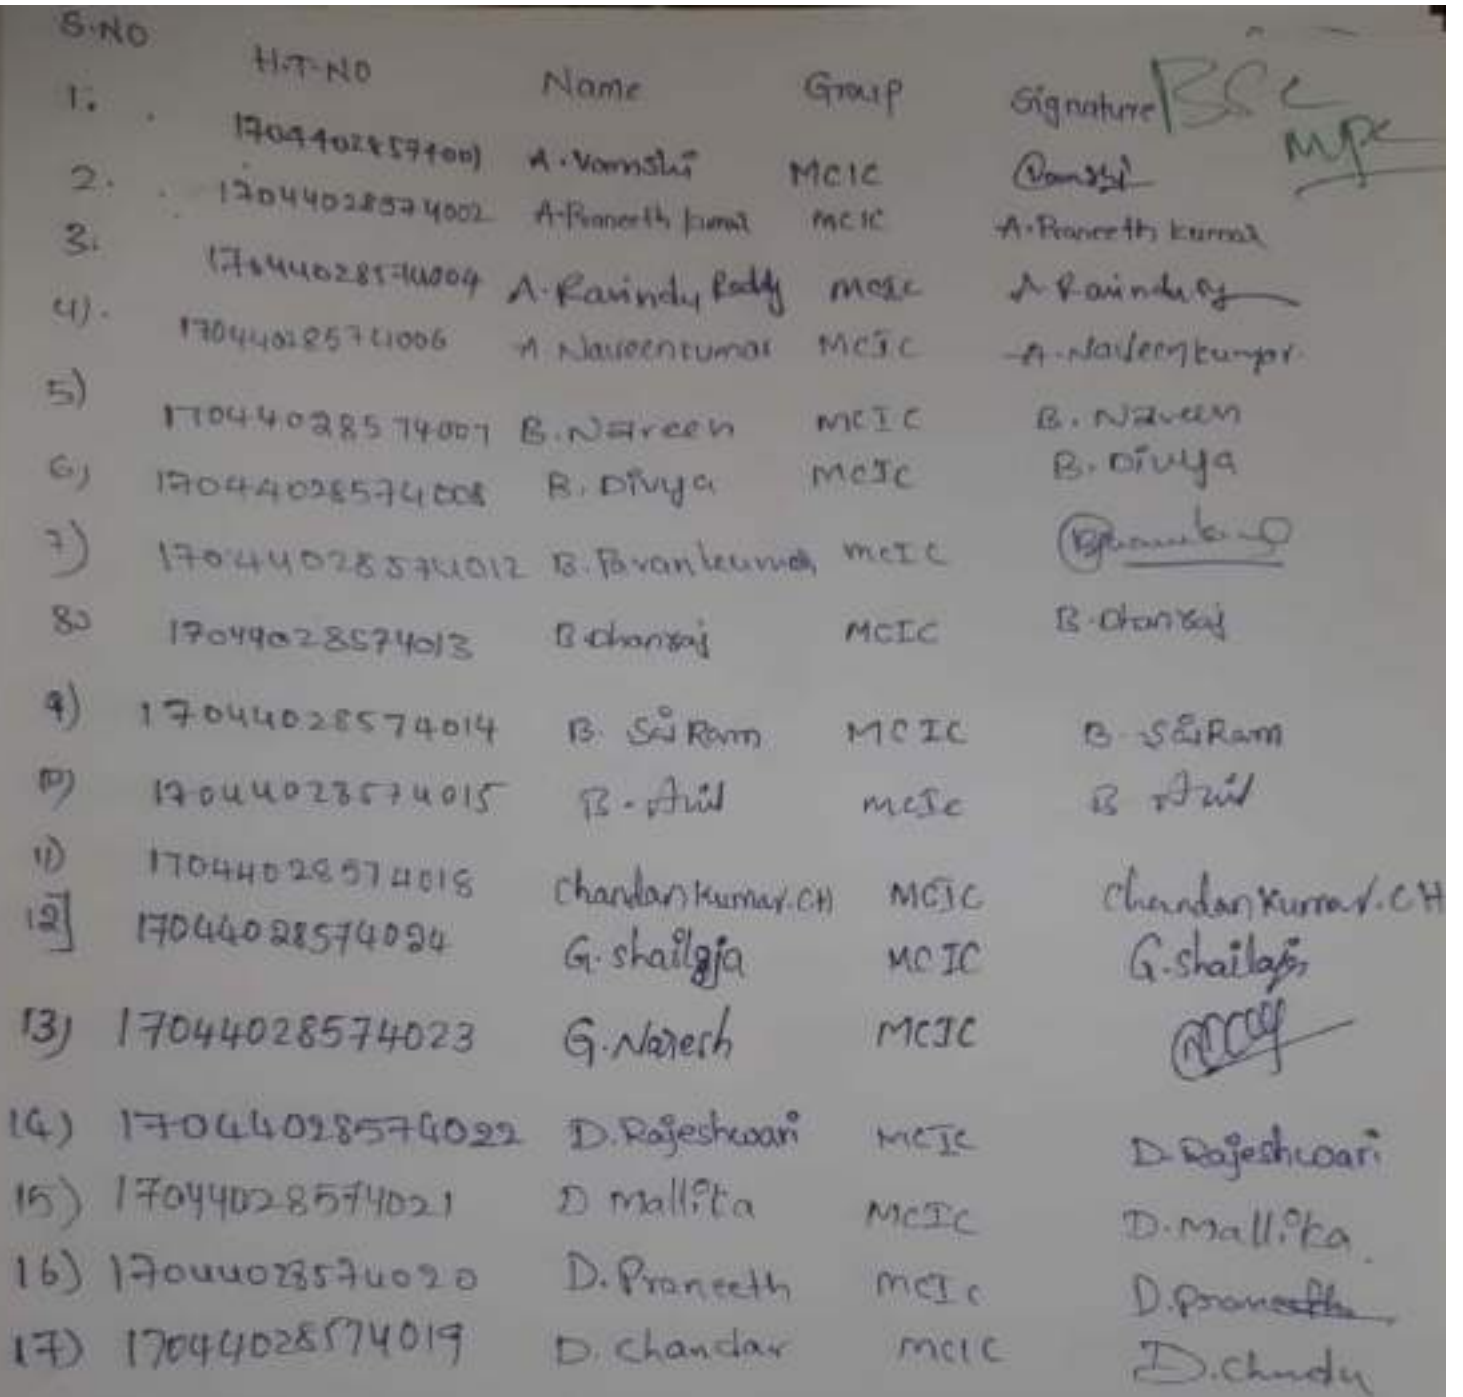 S.NO H.T.NO Name Group Signature BSc
MPC
1. 17044028574001 A.Vamshi MCIC Vamshi
2. 17044028574002 A.Praneeth kumar MCIC A.Praneeth kumar
3. 17044028574004 A.Ravindu Reddy MCIC
4). 17044028574006 A Naveenkumar MCIC A.Naveenkumar.
5) 17044028574007 B.Naveen MCIC B. Naveen
6) 17044028574008 B. Divya MCIC B. Divya
7) 17044028574012 B. Pavankumar MCIC
8) 17044028574013 B.Dhanraj MCIC B.Dhanraj
9) 17044028574014 B. SaiRam MCIC B. SaiRam
10) 17044028574015 B. MCIC B
11) 17044028574018 Chandan Kumar.CH MCIC Chandan Kumar.CH
12] 17044028574024 G.shailaja MCIC G.shailaja
13) 17044028574023 G.Naresh MCIC
14) 17044028574022 D.Rajeshwari MCIC D.Rajeshwari
15) 17044028574021 D Mallika MCIC D.Mallika.
16) 17044028574020 D.Praneeth MCIC D.Praneeth
17) 17044028574019 D. Chandar MCIC D.Chandu